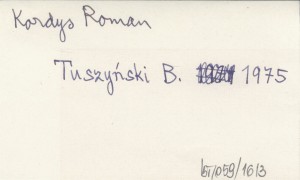 Kordys Roman
Tuszyński B. 1975
bt/059/16/3